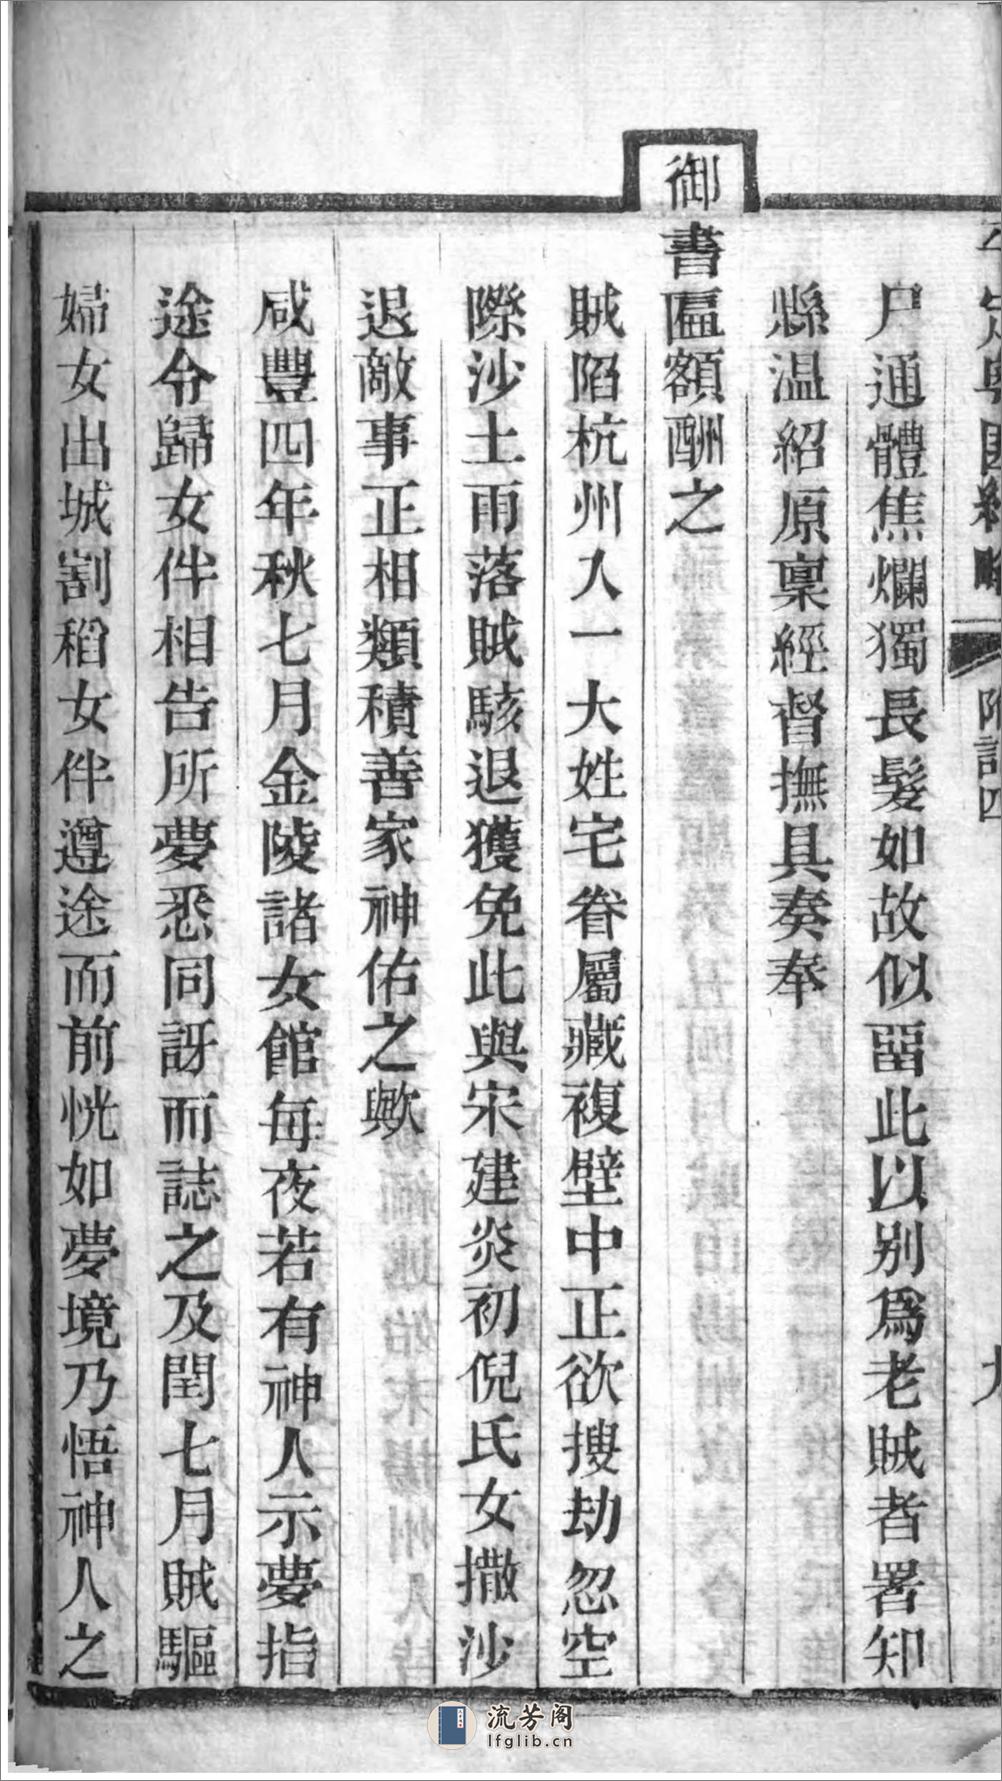 定粤匪紀略
附記四
尸通體焦爛獨長髮如故似畱此以别爲老賊者署知
縣温紹原稟經督撫具奏奉
御書匾額酬之
賊陷杭州入一大姓宅眷屬藏複壁中正欲搜劫忽空
際沙土雨落賊駭退獲免此與宋建炎初倪氏女撒沙
退敵事正相類積善家神佑之歟
咸豐四年秋七月金陵諸女館每夜若有神人示夢指
途令歸女伴相告所夢悉同訝而誌之及閏七月賊驅
婦女出城割稻女伴遵途而前恍如夢境乃悟神人之
流芳阁
lfglib.cn